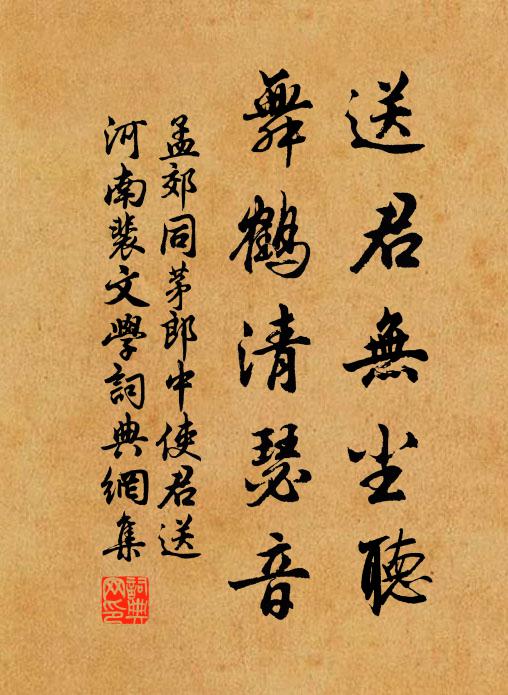 送君無尘聽
舞鶴清瑟音
孟郊同茅郎中使君送
河南裴文學詞典網集
詞典網印